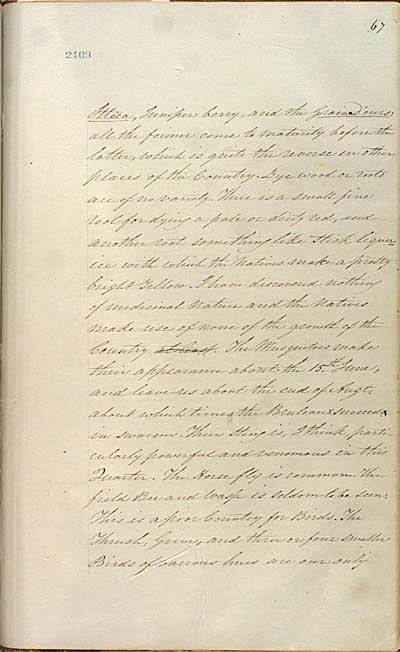 67
2409
Juniper berry, and the Graine d'ours.
all the former come to maturity before the
latter, which is quite the reverse in other
places of the Country. Dye wood or roots
are of no variety. There is a small fine
root for dying a pale or dirty red, and
another root something like Stick liquor
ice with which the Natives make a pretty
bright Yellow. I have discovered nothing
of medicinal Nature and the Natives
made use of none of the growth of the
Country at least. The Musquitoes made
their appearance about the 15th June,
and leave us about the end of Augt.
about which time the Bruleaux succeed
in swarms. Their sting is, I think, parti
cularly powerful and venomous in this
Quarter. The Horse fly is common. The
field Bee and Wasp is seldom to be seen.
This is a poor Country for Birds. The
Thrush, Grive, and three or four smaller
Birds of various hues are our only